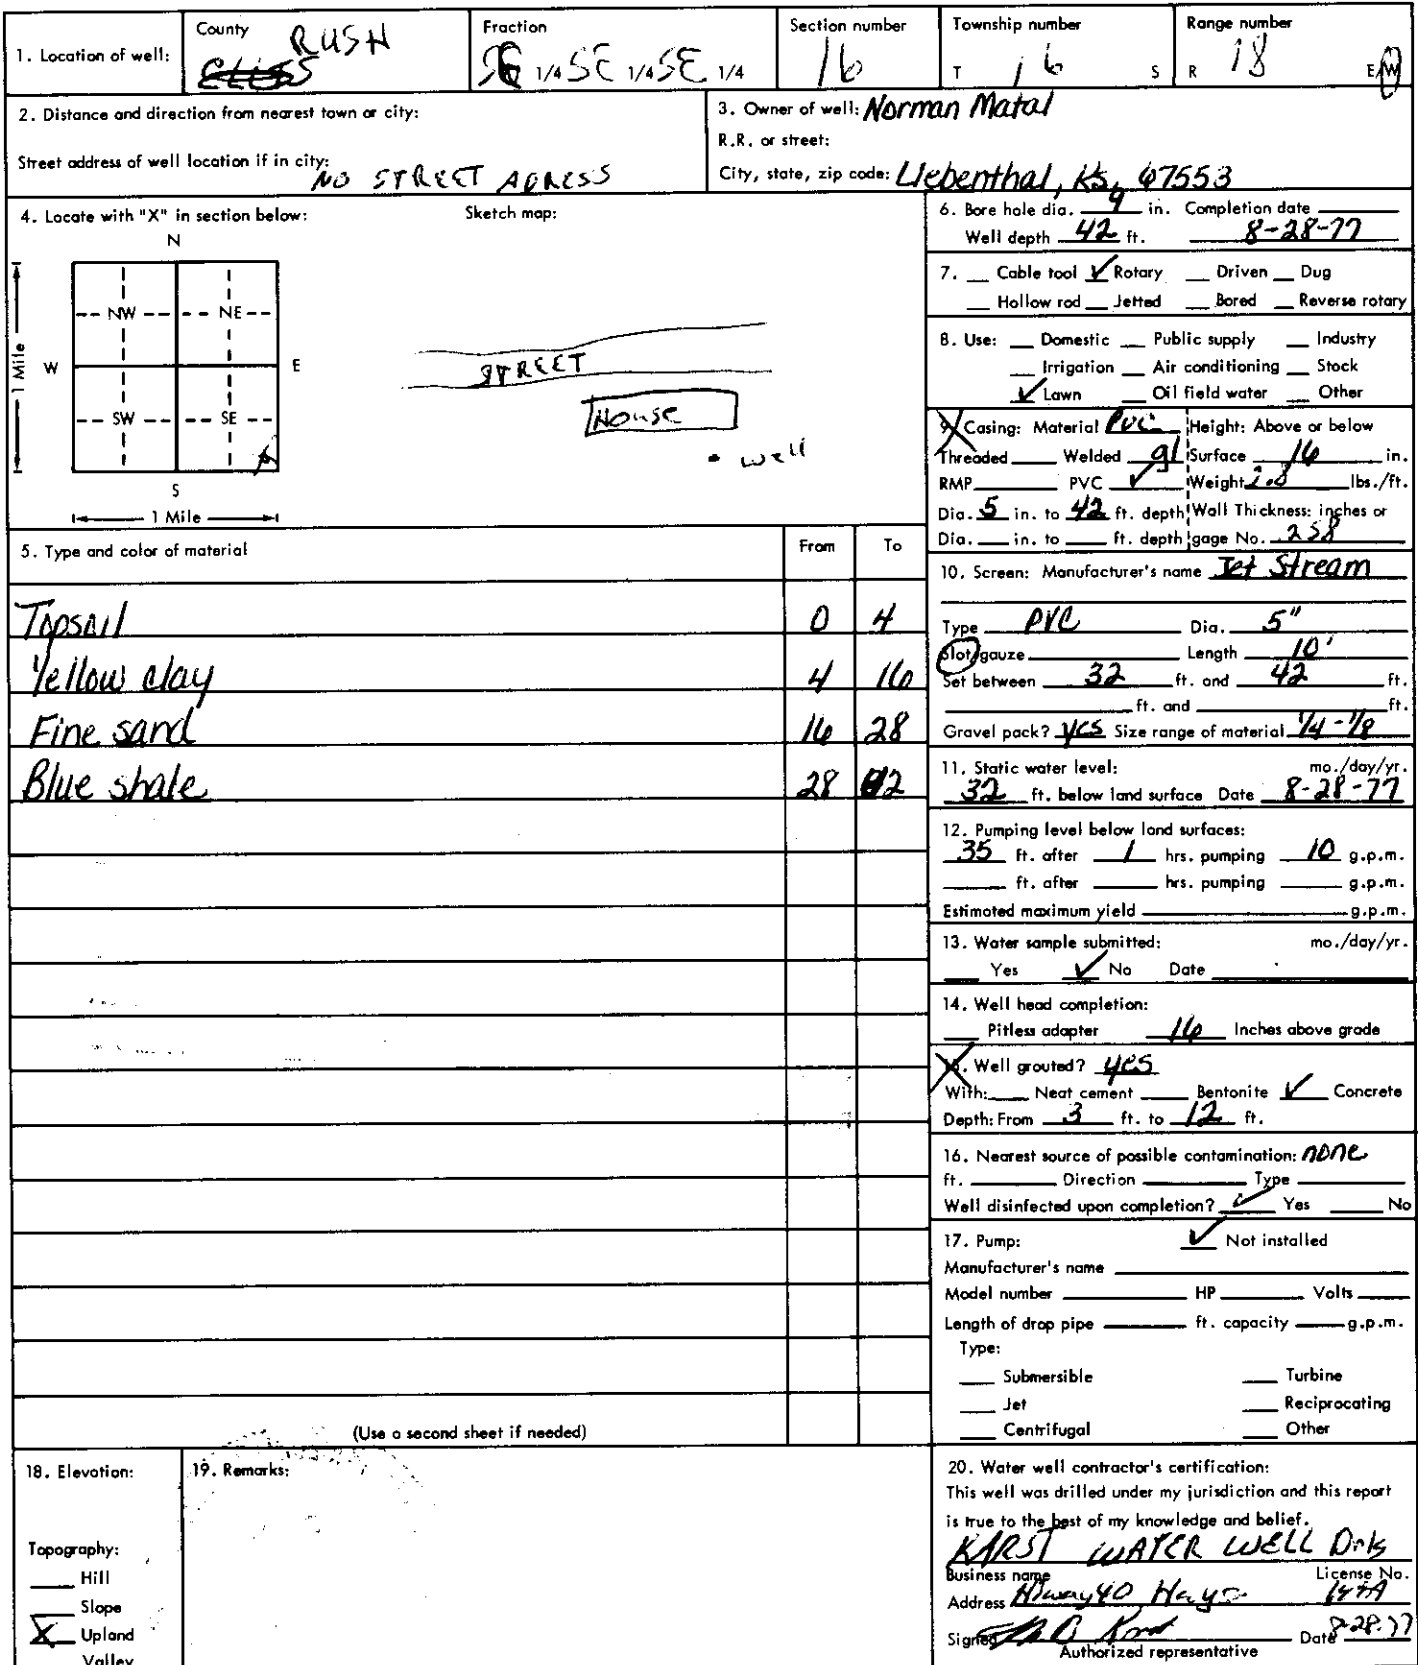 1. Location of well: County RUSH Fraction SE 1/4 SE 1/4 SE 1/4 Section number 16 Township number T 16 S Range number R 18 E/W
2. Distance and direction from nearest town or city:
Street address of well location if in city: NO STREET ADRESS
3. Owner of well: Norman Matal
R.R. or street:
City, state, zip code: Liebenthal, Ks, 67553
4. Locate with "X" in section below: Sketch map:
N
NW NE
W E
SW SE
S
1 Mile
1 Mile
STREET
House
well
5. Type and color of material From To
Topsoil 0 4
Yellow clay 4 16
Fine sand 16 28
Blue shale 28 42
(Use a second sheet if needed)
6. Bore hole dia. 9 in. Completion date
Well depth 42 ft. 8-28-77
7. Cable tool ✓ Rotary Driven Dug
Hollow rod Jetted Bored Reverse rotary
8. Use: Domestic Public supply Industry
Irrigation Air conditioning Stock
✓ Lawn Oil field water Other
9. Casing: Material PVC Height: Above or below
Threaded Welded gl Surface 16 in.
RMP PVC ✓ Weight 2.8 lbs./ft.
Dia. 5 in. to 42 ft. depth Wall Thickness: inches or
Dia. in. to ft. depth gage No. .258
10. Screen: Manufacturer's name Jet Stream
Type PVC Dia. 5"
Slot/gauze Length 10'
Set between 32 ft. and 42 ft.
ft. and ft.
Gravel pack? yes Size range of material 1/4-1/8
11. Static water level: mo./day/yr.
32 ft. below land surface Date 8-28-77
12. Pumping level below land surfaces:
35 ft. after 1 hrs. pumping 10 g.p.m.
ft. after hrs. pumping g.p.m.
Estimated maximum yield g.p.m.
13. Water sample submitted: mo./day/yr.
Yes ✓ No Date
14. Well head completion:
Pitless adapter 16 Inches above grade
15. Well grouted? yes
With: Neat cement Bentonite ✓ Concrete
Depth: From 3 ft. to 12 ft.
16. Nearest source of possible contamination: none
ft. Direction Type
Well disinfected upon completion? ✓ Yes No
17. Pump: ✓ Not installed
Manufacturer's name
Model number HP Volts
Length of drop pipe ft. capacity g.p.m.
Type:
Submersible Turbine
Jet Reciprocating
Centrifugal Other
18. Elevation:
Topography:
Hill
Slope
X Upland
Valley
19. Remarks:
20. Water well contractor's certification:
This well was drilled under my jurisdiction and this report
is true to the best of my knowledge and belief.
KARST WATER WELL Drlg
Business name License No.
Address Hiway 40 Hays
Signed Date 8-28-77
Authorized representative